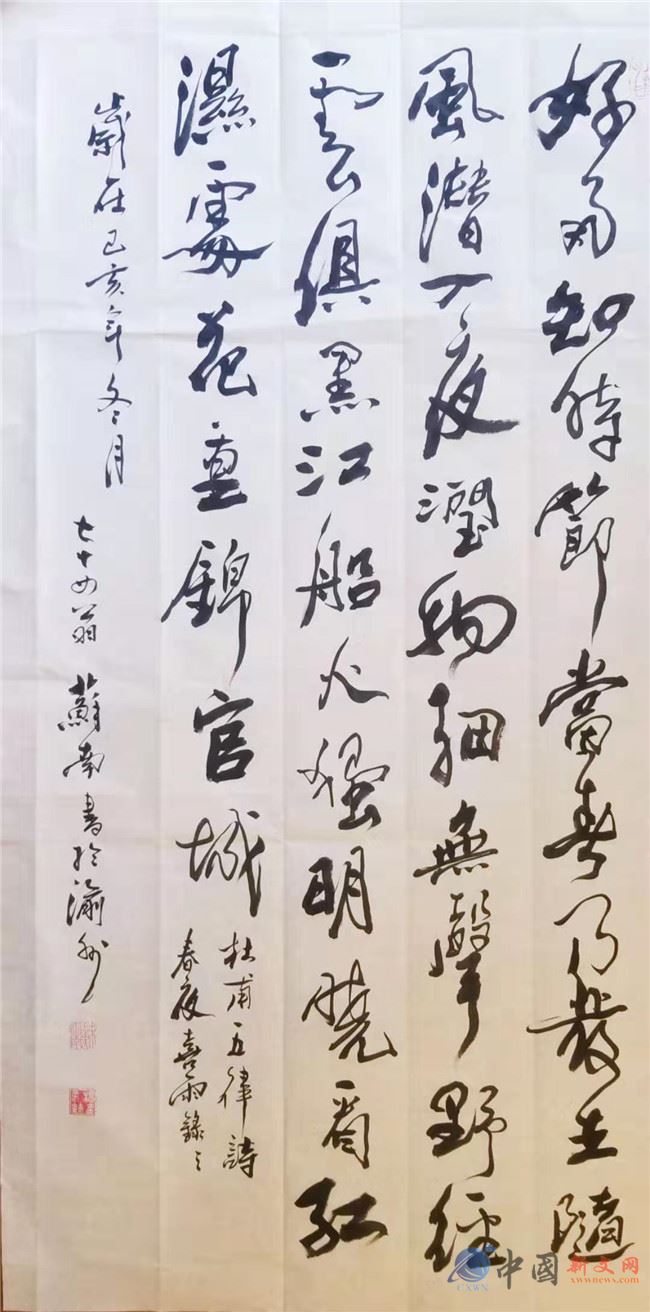 好雨知時節當春乃發生隨
風潛入夜潤物細無聲野徑
雲俱黑江船火獨明曉看紅
濕處花重錦官城
杜甫五律詩
春夜喜雨錄之
歲在己亥年冬月 七十四翁 蘇南書於渝州
中國新文网
CXWN
www.xwwnews.com